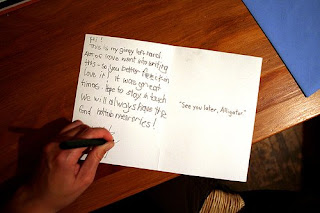 Hi!
This is my gimpy left hand.
A lot of love went into writing
this - so you better freakin
love it! It was great
times. Hope to stay in touch
We will always have the
and tattoo memories!
"See you later, Alligator"